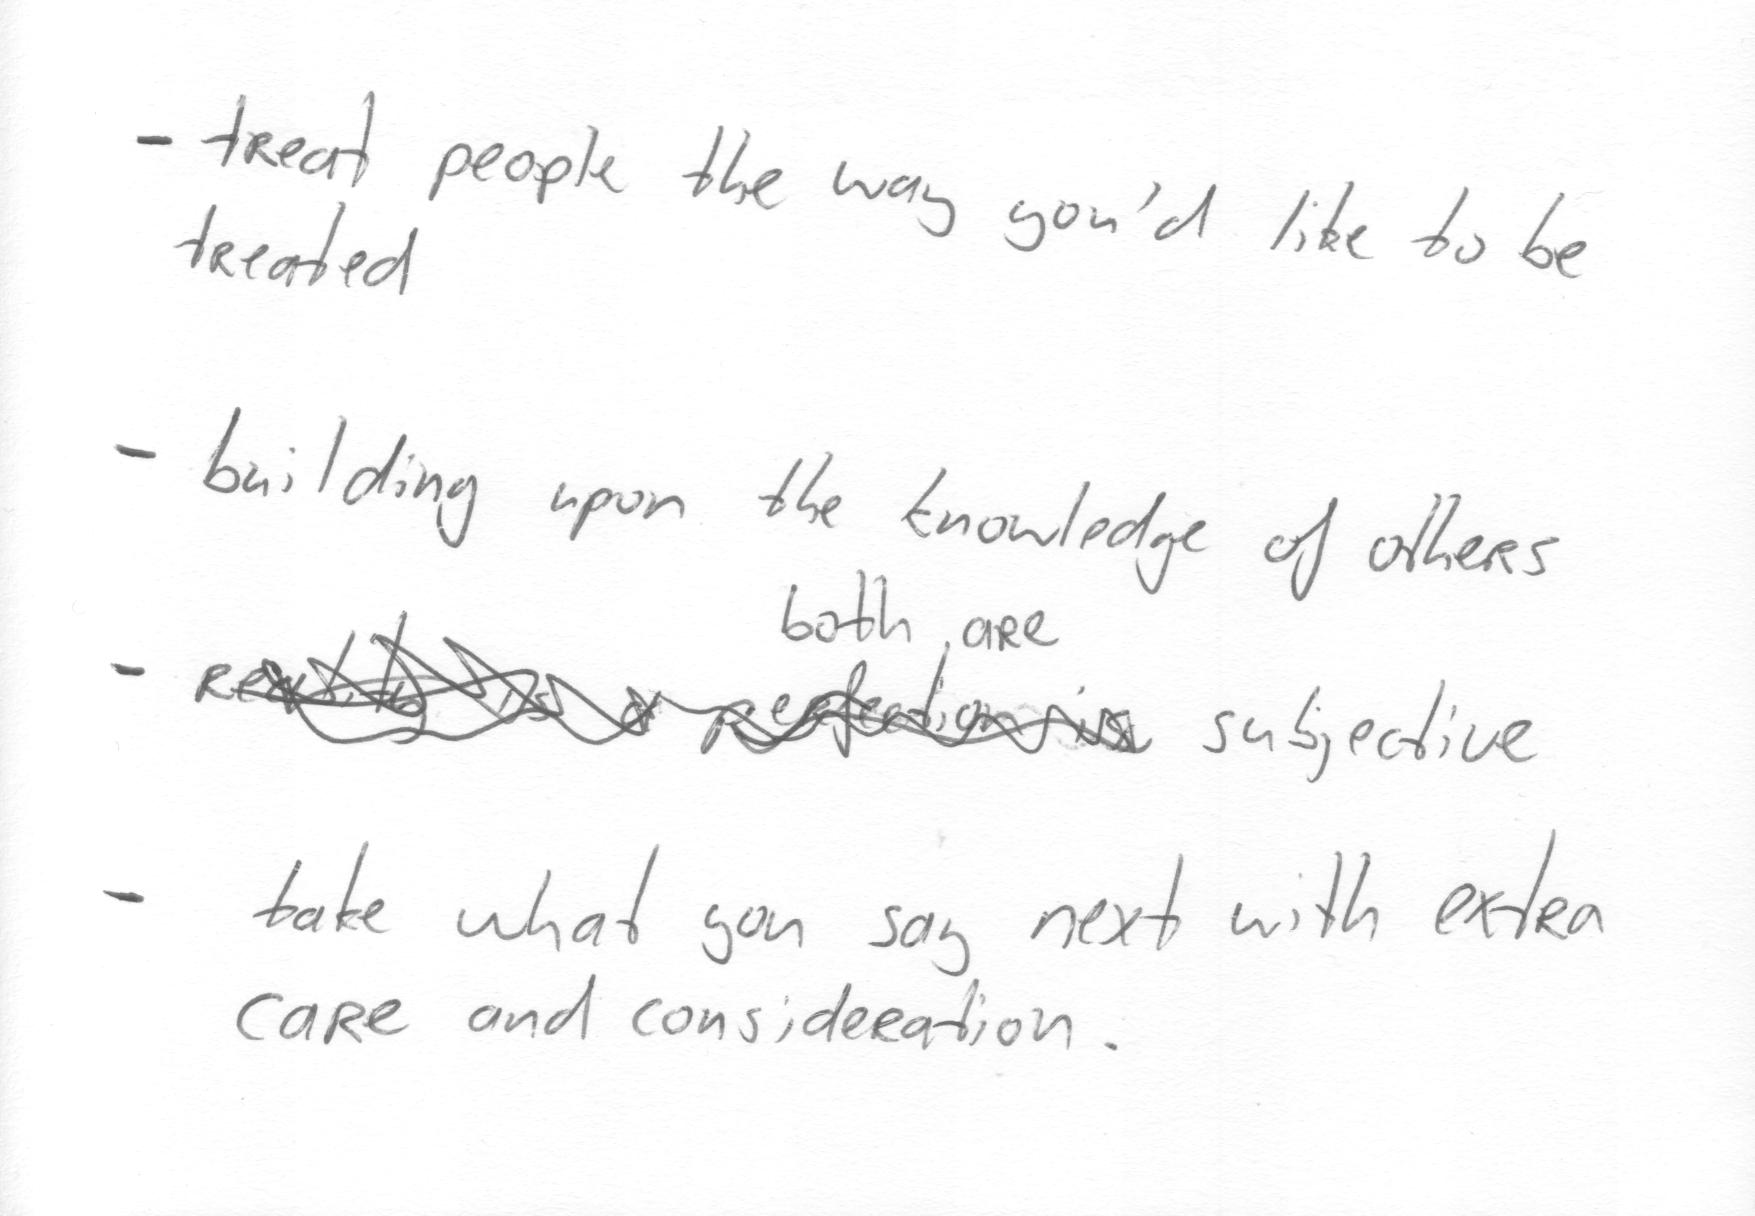 - treat people the way you'd like to be
treated
- building upon the knowledge of others
both are
- subjective
- take what you say next with extra
care and consideration.